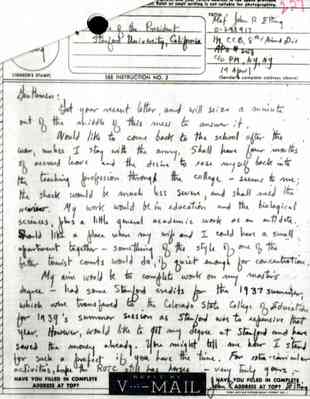 of the President
Stanford University, California
Prof John D. Elting
CCB, 8th Armd Div
19 April
(CENSOR'S STAMP)
SEE INSTRUCTION NO. 2
(Sender's complete address above)
Gentlemen:
Got your recent letter and will seize a minute
out of the middle of this mess to answer it.
Would like to come back to the school after the
war, unless I stay with the army. Shall have four months
of accrued leave and the desire to ease myself back into
the teaching profession through the college - seems to me
the shock would be much less severe, and shall need the
review. My work would be in education and the biological
sciences, plus a little general academic work as an antidote.
Would like a place where my wife and I could have a small
apartment together - something of the style of one of the
better tourist courts would do, if quiet enough for concentration.
My aim would be to complete work on my master's
degree - had some Stanford credits for the 1937 summer,
which were transferred to the Colorado State College of Education
for 1939's summer session as Stanford was too expensive that
year. However, would like to get my degree at Stanford and have
saved the money already. You might tell me how I stand
for such a project if you have the time. For extra-curricular
activities, hope the ROTC still has horses - very truly yours,
HAVE YOU FILLED IN COMPLETE
ADDRESS AT TOP?
V-MAIL
HAVE YOU FILLED IN COMPLETE
ADDRESS AT TOP?